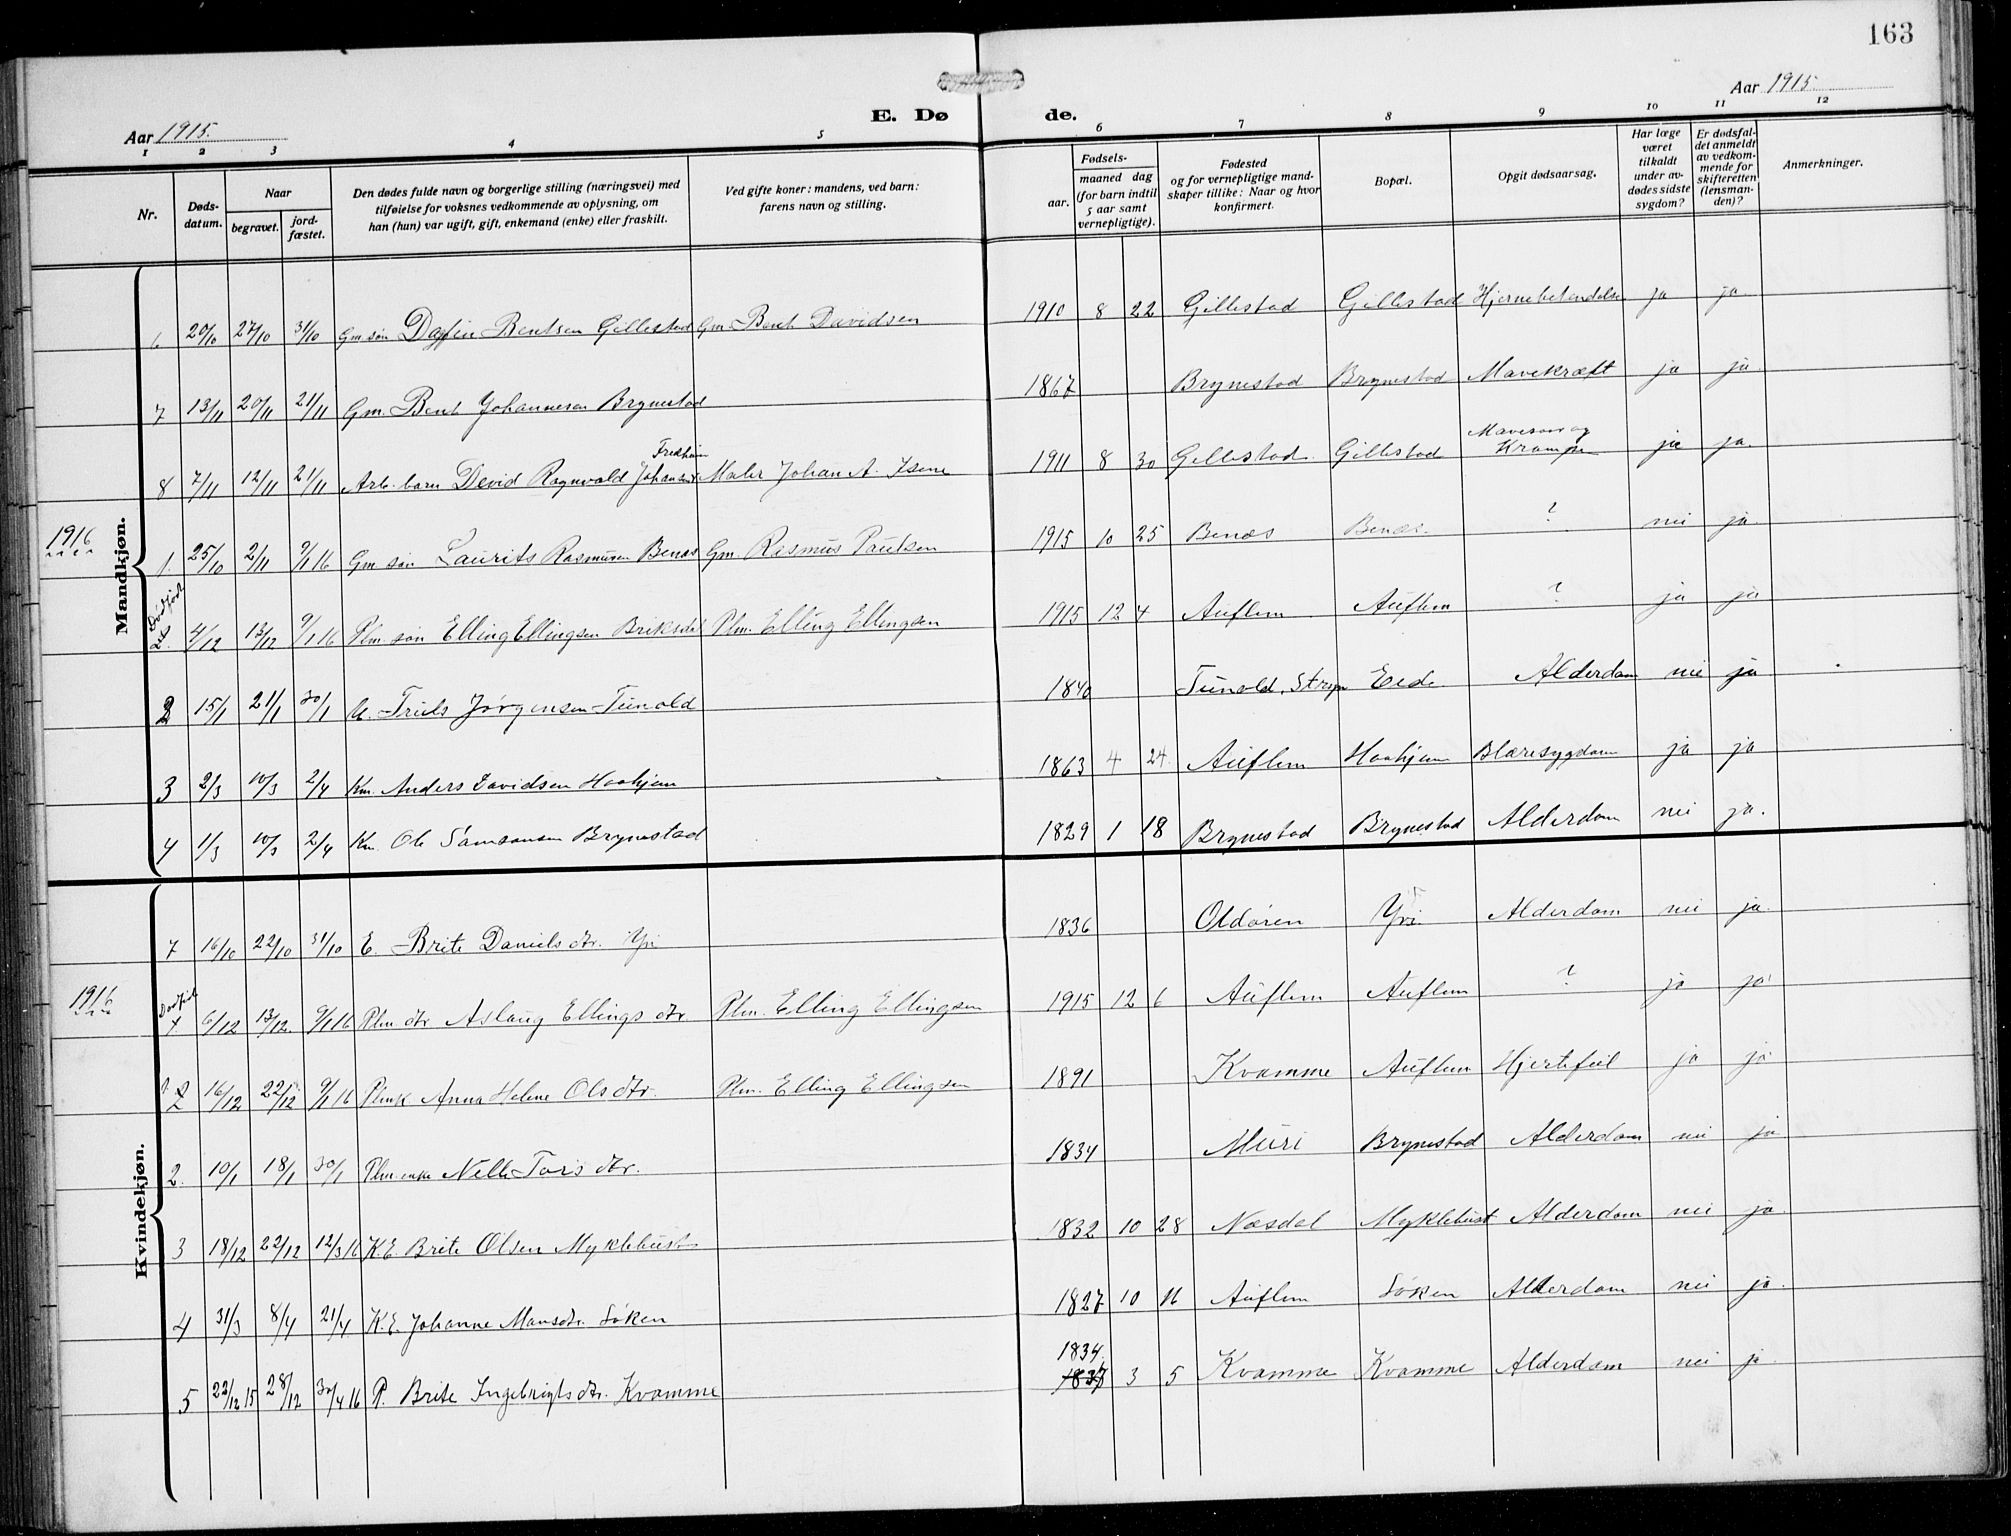 163
Aar 1915.
E. Dø de.
Aar 1915.
1 2 3 4 5 6 7 8 9 10 11 12
Nr.
Døds-datum.
Naar
begravet.
jord-fæstet.
Den dødes fulde navn og borgerlige stilling (næringsvei) med
tilføielse for voksnes vedkommende av oplysning, om
han (hun) var ugift, gift, enkemand (enke) eller fraskilt.
Ved gifte koner: mandens, ved barn:
farens navn og stilling.
Fødsels-
aar.
maaned dag
(for barn indtil
5 aar samt
vernepligtige).
Fødested
og for vernepligtige mand-
skaper tillike: Naar og hvor
konfirmert.
Bopæl.
Opgit dødsaarsag.
Har læge
været
tilkaldt
under av-
dødes sidste
sygdom?
Er dødsfal-
det anmeldt
av vedkom-
mende for
skifteretten
(lensman-
den)?
Anmerkninger.
Mandkjøn.
6 20/10 27/10 31/10 Gm søn Dagfin Bentsen Gillestad Gm. Bent Davidsen 1910 8 22 Gillestad Gillestad Hjernebetendelse ja ja.
7 13/11 20/11 21/11 Gm. Bent Johannesen Brynestad 1867 Brynestad Brynestad Mavekræft ja ja.
8 7/11 12/11 21/11 Arb. barn David Ragnvald Johansen Fredheim Maler Johan A. Isene 1911 8 30 Gillestad. Gillestad Mavesaar og Krampe ja ja.
1916
1. 25/10 2/11 9/1 16 Gm søn Laurits Rasmusen Benæs Gm. Rasmus Paulsen 1915 10 25 Benæs Benæs. ? nei ja.
Dødfødt 4/12 13/12 9/1 16 Plm. søn Elling Ellingsen Briksdal Plm. Elling Ellingsen 1915 12 4 Auflem Auflem ? ja ja
2 15/1 21/1 30/1 K. Truls Jørgensen Tunold 1840 Tunold, Stryn Eide. Alderdom nei ja
3 2/3 10/3 2/4 Km. Anders Davidsen Haahjem 1863 4 24. Auflem Haahjem Blæresygdom ja ja
4 1/3 10/3 2/4 Km. Ole Samsonsen Brynestad 1829 1 18 Brynestad Brynestad Alderdom nei ja.
Kvindekjøn.
7 16/10 22/10 31/10 E. Brite Daniels dtr. Yri 1836 Oldøren Yri Alderdom nei ja.
1916
Dødfød 6/12 13/12. 9/1 16 Plm. dtr Aslaug Ellings dtr. Plm. Elling Ellingsen 1915 12 6 Auflem Auflem ? ja ja.
16/12 22/12 9/1 16 Plmk Anna Helene Ols dtr. Plm. Elling Ellingsen 1891 Kvamme Auflem Hjertefeil ja ja.
2. 10/1 18/1 30/1 Plm. enke Nelle Tors dtr. 1834 Muri Brynestad Alderdom nei ja
3 18/12 22/12 12/3 16 K.E. Brite Olsen Myklebust 1832 10 28 Næsdal Myklebust Alderdom nei ja.
4 31/3 8/4 21/4 K.E. Johanne Mons dtr. Søken 1827 10 16 Auflem Søken Alderdom nei ja.
5 22/12 15 28/12 30/4 16 P. Brite Ingebrigts dtr. Kvamme 1834. 1837 3 5 Kvamme Kvamme Alderdom nei ja.